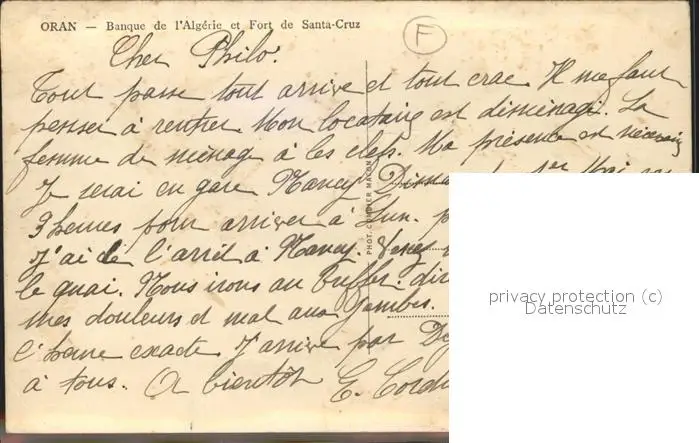 ORAN — Banque de l'Algérie et Fort de Santa-Cruz
F
Cher Philo.
Tout passe tout arrive et tout crae. Il me faut
penser à rentrer Mon locataire est déménagé. La
femme de ménage à les clefs. Ma présence est nécessaire
Je serai en gare Nancy 1er Mai
9 heures pour arriver à Lun.
J'ai de l'arrêt à Nancy. Venez
le quai. Nous irons au buffet.
mes douleurs et mal aux jambes.
l'heure exacte. J'arrive par
à tous. A bientôt E.
PHOT. COMBIER MACON
privacy protection (c)
Datenschutz